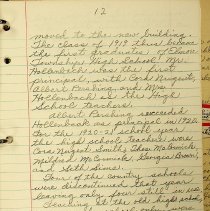 12
moved to the new building.
The class of 1919 thus became
the first graduates of Union
Township High School. Mr.
Hollenbach was the first
principal, with Cora Nungist,
Albert Pershing, and Mrs.
Hollenbach as the High
School teachers.
Albert Pershing succeeded
Hollenbach as principal in 1920.
For the 1920-21 school year
the high school teachers were
Mae McCormick,
Mildred McCormick, Georgia Brown,
and Seth Simes.
Four of the country schools
were discontinued that year,
leaving only four still in use.
Teaching at the old high school,